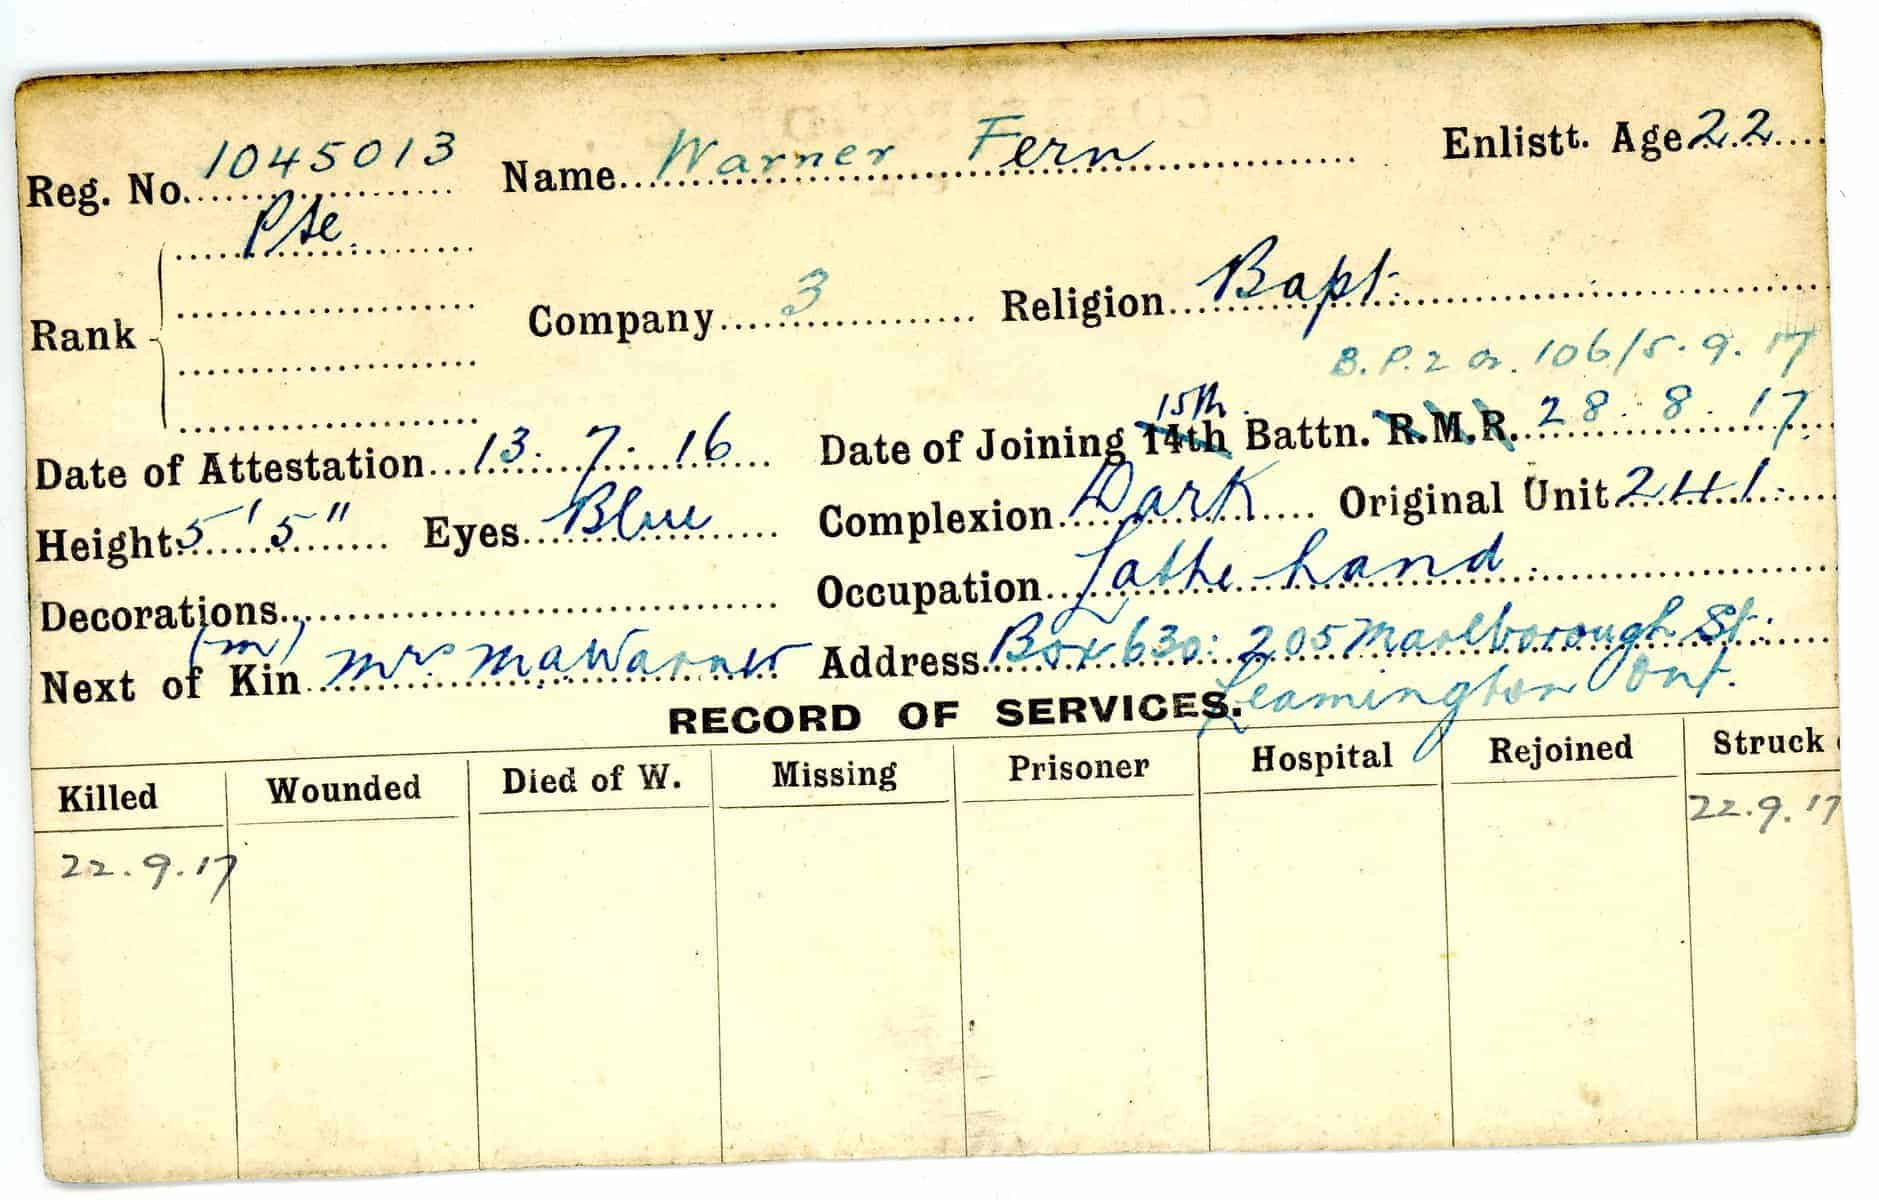 Reg. No. 1045013 Name Warner Fern Enlistt. Age 22
Pte.
Rank Company 3 Religion Bapt.
B.P.2 Or. 106/5.9.17
15th
Date of Attestation 13.7.16 Date of Joining 14th Battn. R.M.R. 28.8.17.
Height 5'5" Eyes Blue Complexion Dark Original Unit 241.
Decorations Occupation Lathe hand
(m)
Next of Kin Mrs. M A Warner Address Box 630: 205 Marlborough St.
Leamington Ont.
RECORD OF SERVICES.
Killed Wounded Died of W. Missing Prisoner Hospital Rejoined Struck
22.9.17 22.9.17